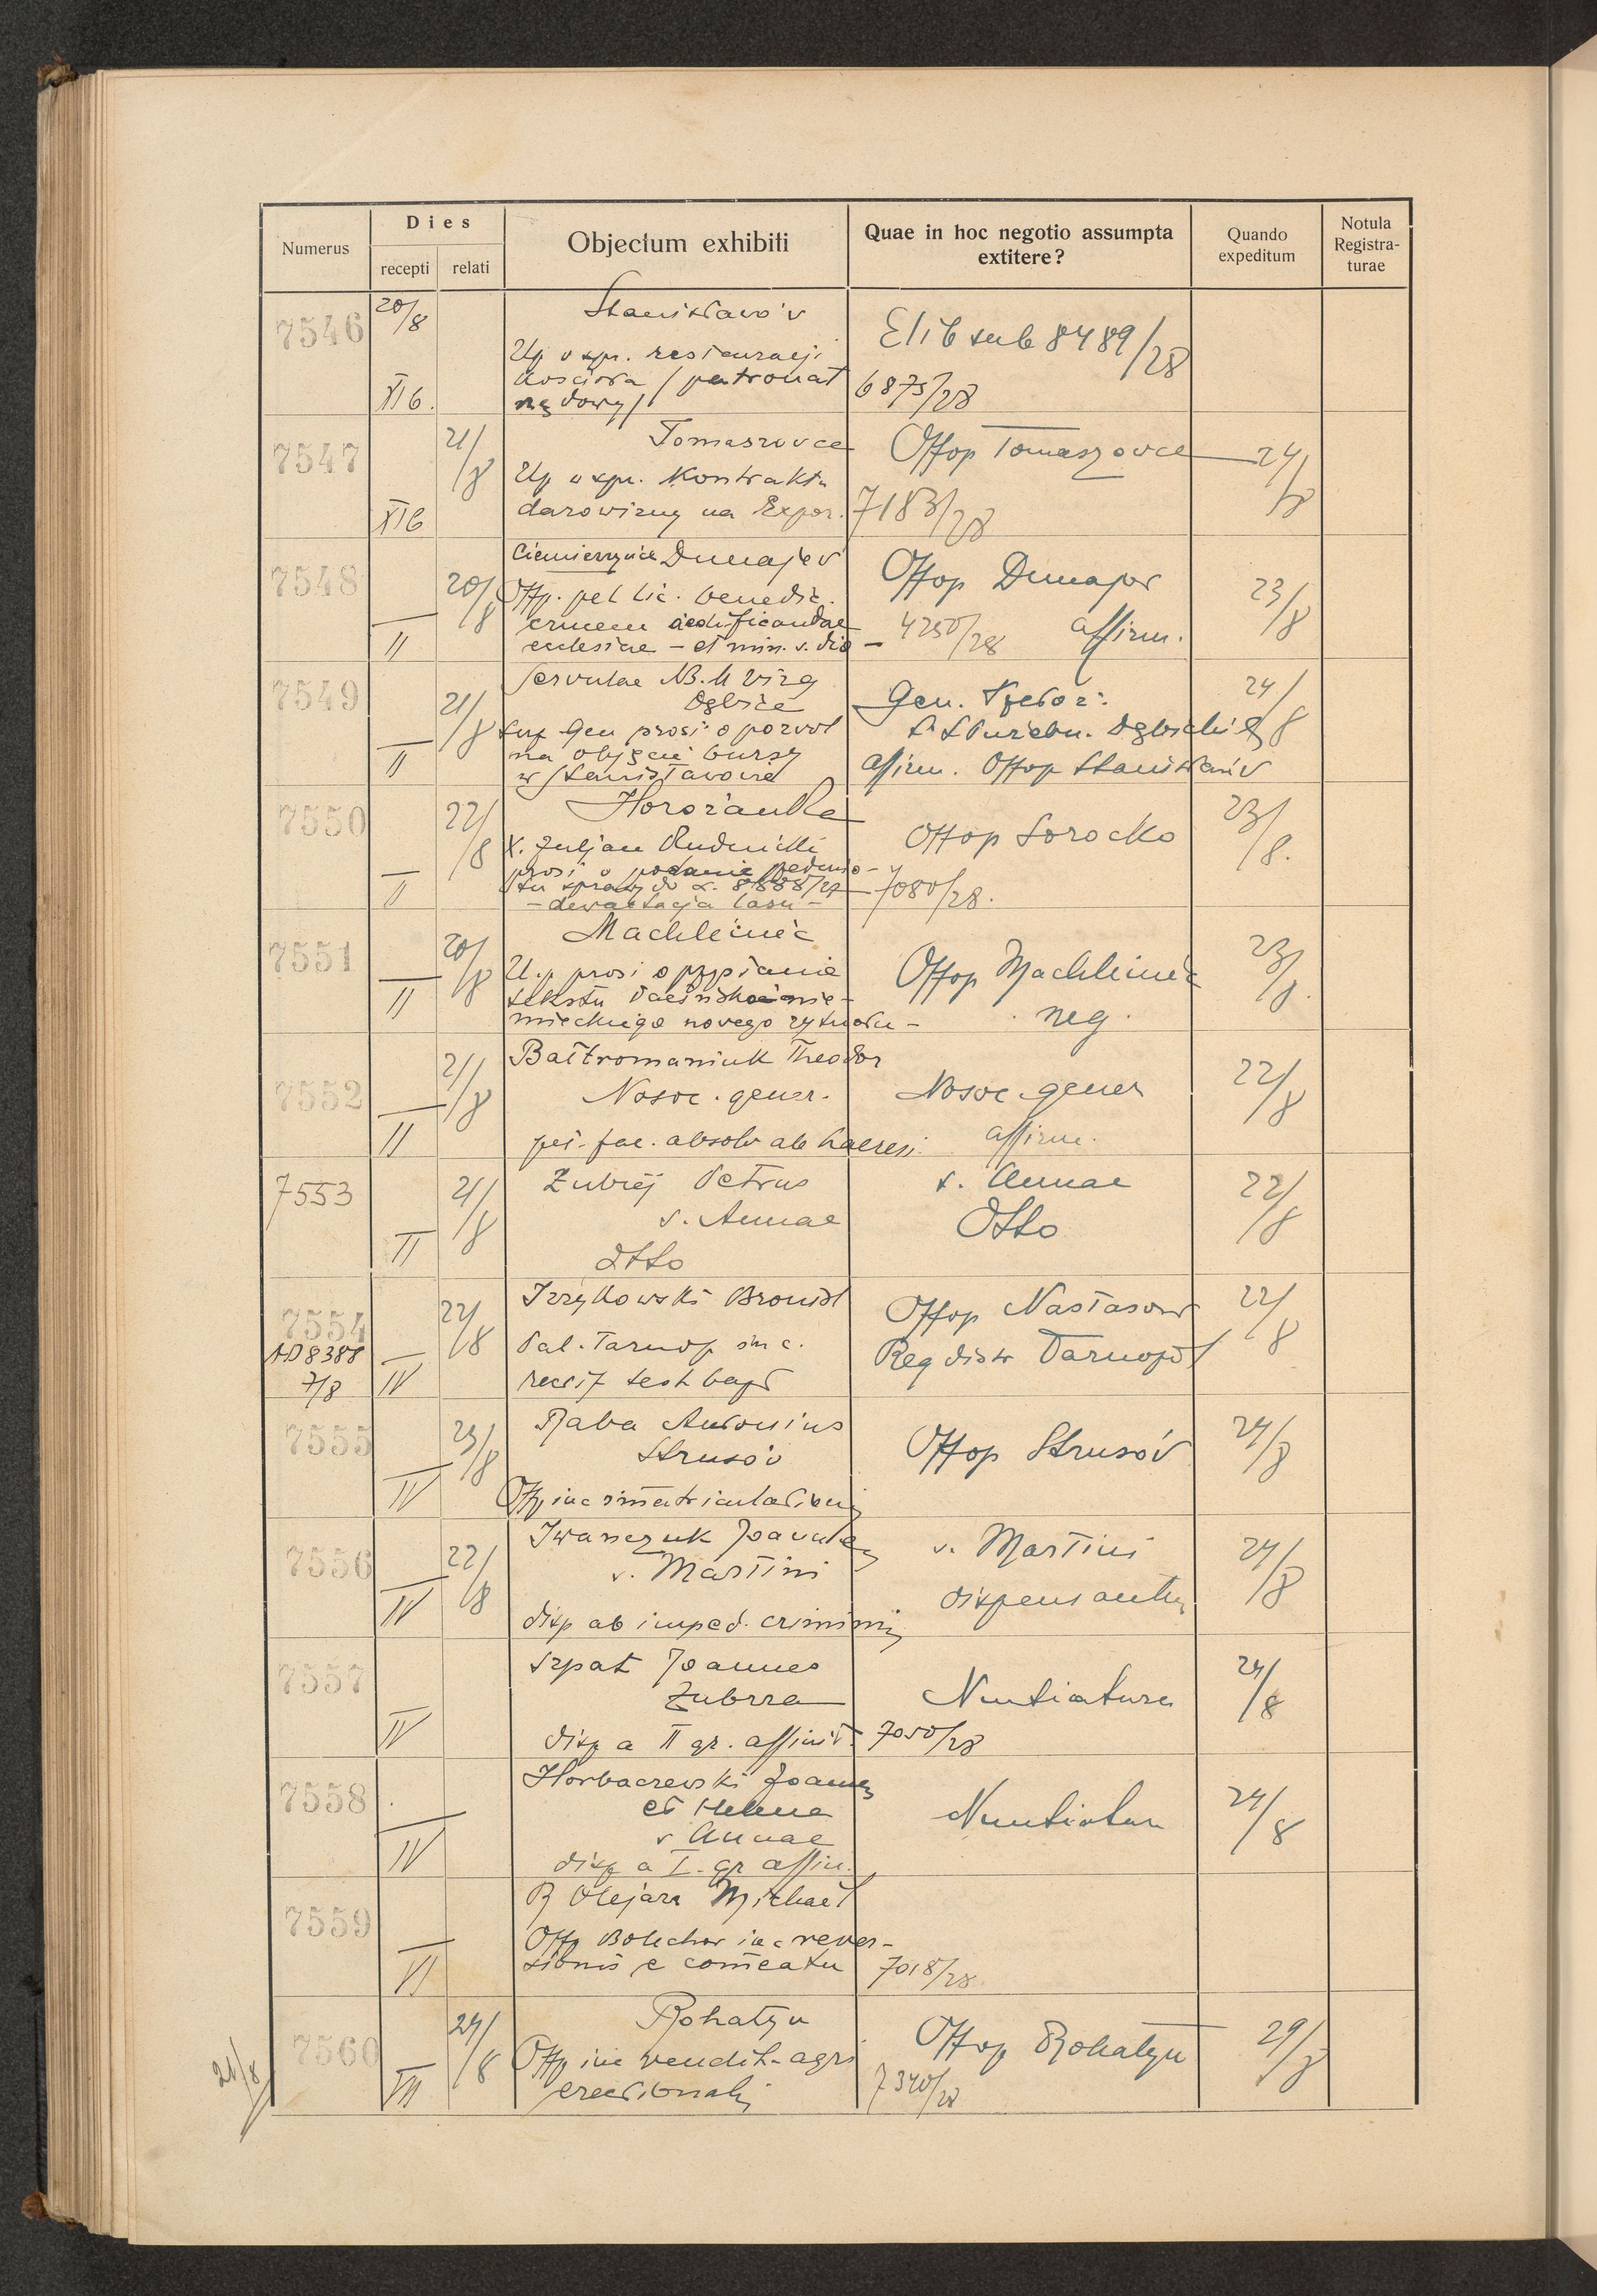 Numerus
Dies
recepti
relati
Objectum exhibiti
Quae in hoc negotio assumpta
extitere?
Quando
expeditum
Notula
Registra-
turae
7546
20/8
XIb.
Stanisławów
Up w spr. restauracji
kościoła / patronat
rządowy/
Elib sub 8489/28
6875/28
7547
XIb
21/8
Tomaszowce
Up w spr. kontraktu
darowizny na Expoz.
Offop Tomaszowce
7183/28
24/8
7548
II
20/8
Ciemierzyńce Dunajów
Offp. pet lic. benedic.
crucem aedificandae
ecclesiae - et min. v. dio -
Offop Dunajów
4250/28 affirm.
23/8
7549
II
21/8
Servulae B. M Virg
Dębica
Sup Gen prosi o pozwol
na objęcie bursy
w Stanisławowie
Gen.
affirm. Offop Stanisławów
24/8
7550
II
22/8
Horożanka
X. Juljan Rudnicki
prosi o podanie
sprawy do L. 8888/27
- dewastacja lasu -
Offop Sorocko
7080/28.
23/8.
7551
II
20/8
Machliniec
U.p prosi o przysłanie
tekstu łacińsko nie-
mieckiego nowego rytuału -
Offop Machliniec
neg.
23/8.
7552
II
21/8
Bałtromaniuk Theodor
Nosoc. gener.
pet. fac. absolv ab haeresi
Nosoc. gener
affirm.
22/8
7553
II
21/8
Zubrej Petrus
s. Annae
dtto
s. Annae
Dtto
22/8
7554
AD 8388
7/8
IV
22/8
Irzykowski Bronisl
Pal. Tarnop in c.
rectif test bapt
Offop Nastasów
Reg distr Tarnopol
22/8
7555
IV
23/8
Raba Antonius
Strusów
Offp in c immatriculationis
Offop Strusów
24/8
7556
IV
22/8
Iwanczuk Paulus
s. Martini
disp ab imped. criminis
s. Martini
dispensantur
24/8
7557
IV
Szpak Joannes
Zubrza
disp a II gr. affinit.
Nuntiatura
7050/28
24/8
7558
IV
Horbaczewski Joannes
et Helena
s Annae
disp a I. gr affin.
Nuntiatura
24/8
7559
VI
R Olejarz Michael
Offp Bolechów in c rever-
sionis e comeatu
7018/28.
21/8
7560
VII
24/8
Rohatyn
Offp in c vendit. agri
erectionalis
Offop Rohatyn
7340/28
29/8